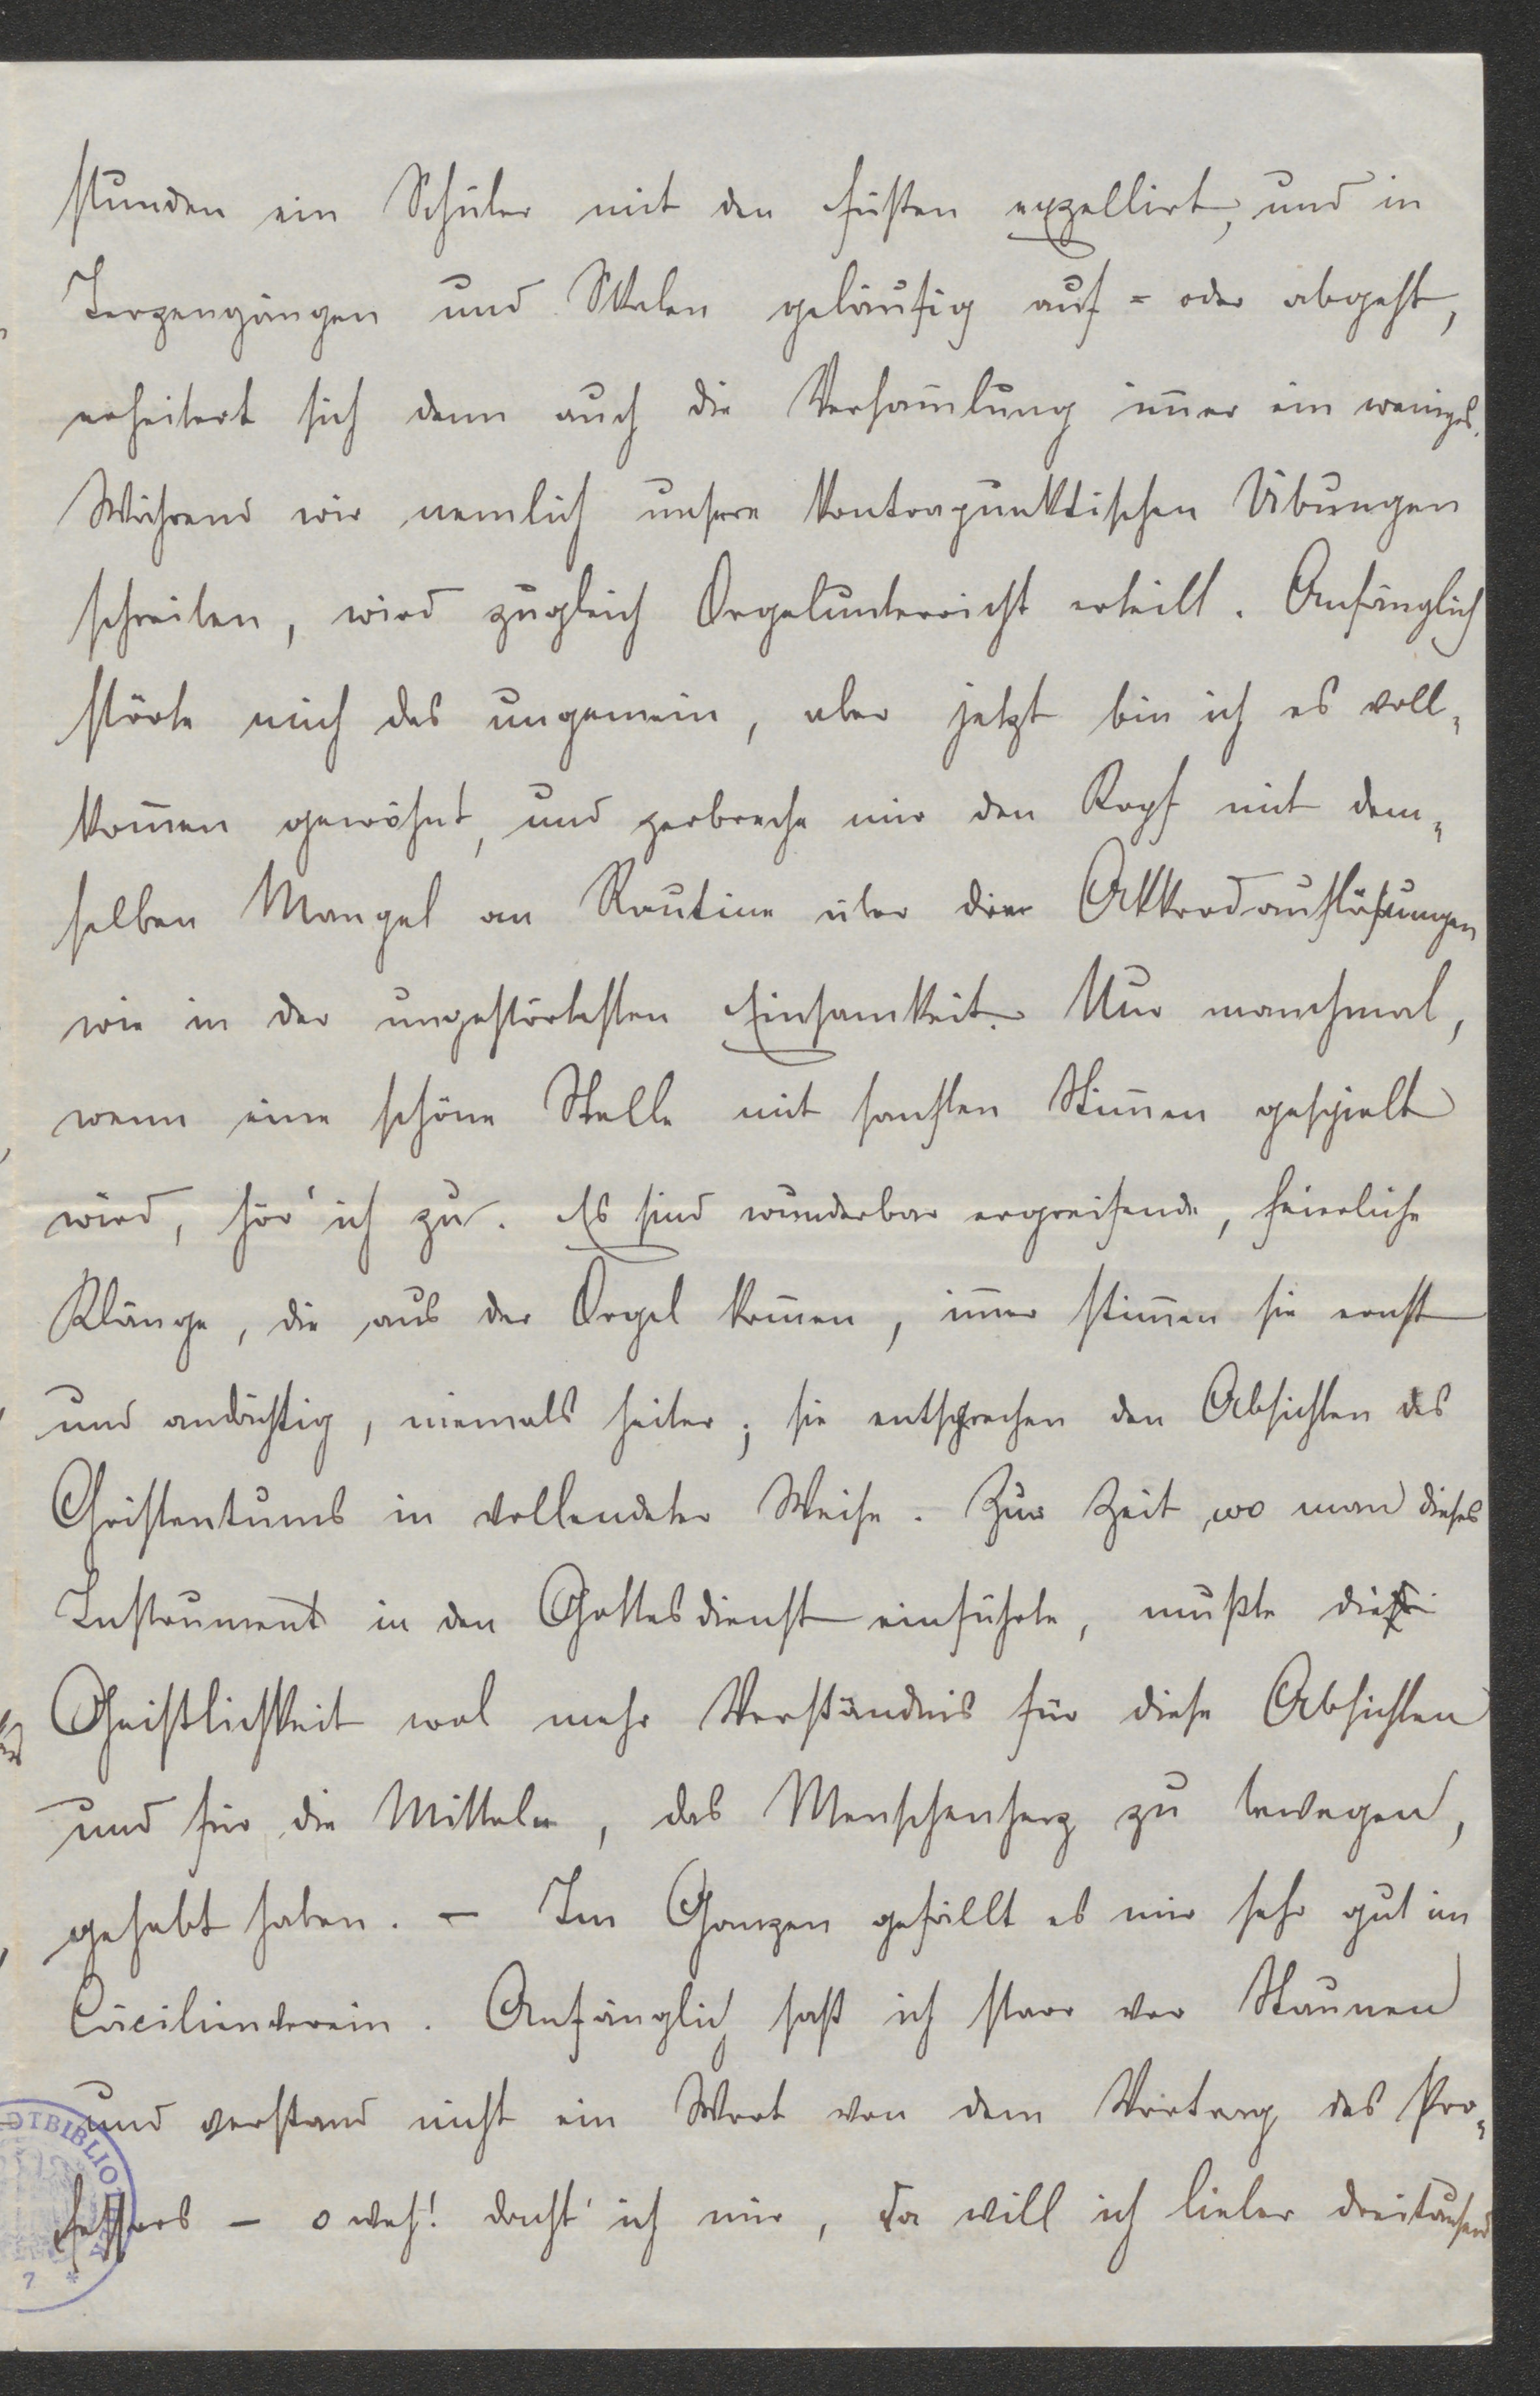 stunden ein Schüler mit den Füßen exzellirt, und in
Terzengängen und Skalen geläufig auf= oder abgeht,
erheitert sich denn auch die Versam̅lung im̅er ein weniges.
Während wir nemlich unsere kontrapunktischen Übungen
schreiben, wird zugleich Orgelunterricht erteilt. Anfänglich
störte mich das ungemein, aber jetzt bin ich es voll=
kom̅en gewöhnt, und zerbreche mir den Kopf mit dem=
selben Mangel an Routine über Akkordauflösungen
wie in der ungestörtesten Einsamkeit. Nur manchmal,
wenn eine schöne Stelle mit sanften Stim̅en gespielt
wird, hör' ich zu. Es sind wunderbar ergreifende, feierliche
Klänge, die aus der Orgel kom̅en, im̅er stim̅en sie ernst
und andächtig, niemals heiter; sie entsprechen den Absichten des
Christentums in vollendeter Weise. Zur Zeit, wo man dieses
Instrument in den Gottesdienst einführte, mußte die
Geistlichkeit wol mehr Verständnis für diese Absichten
und für die Mitteln, das Menschenherz zu bewegen,
gehabt haben. – Im Ganzen gefällt es mir sehr gut im
Cäcilienverein. Anfänglich saß ich starr vor Staunen
und verstand nicht ein Wort von dem Vortrag des Pro=
fessors – o weh! dacht' ich mir, da will ich lieber dreitausend
DTBIBLIO
7 *